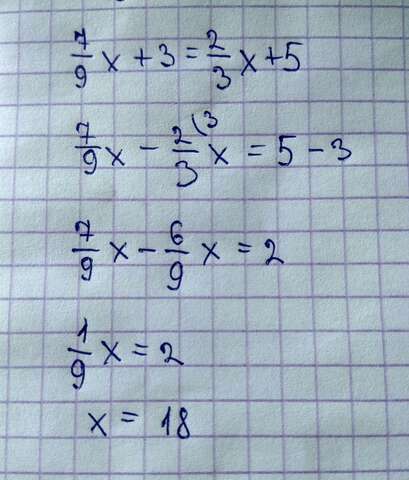 7/9 x + 3 = 2/3 x + 5
7/9 x - 2/3 (3 x = 5 - 3
7/9 x - 6/9 x = 2
1/9 x = 2
x = 18